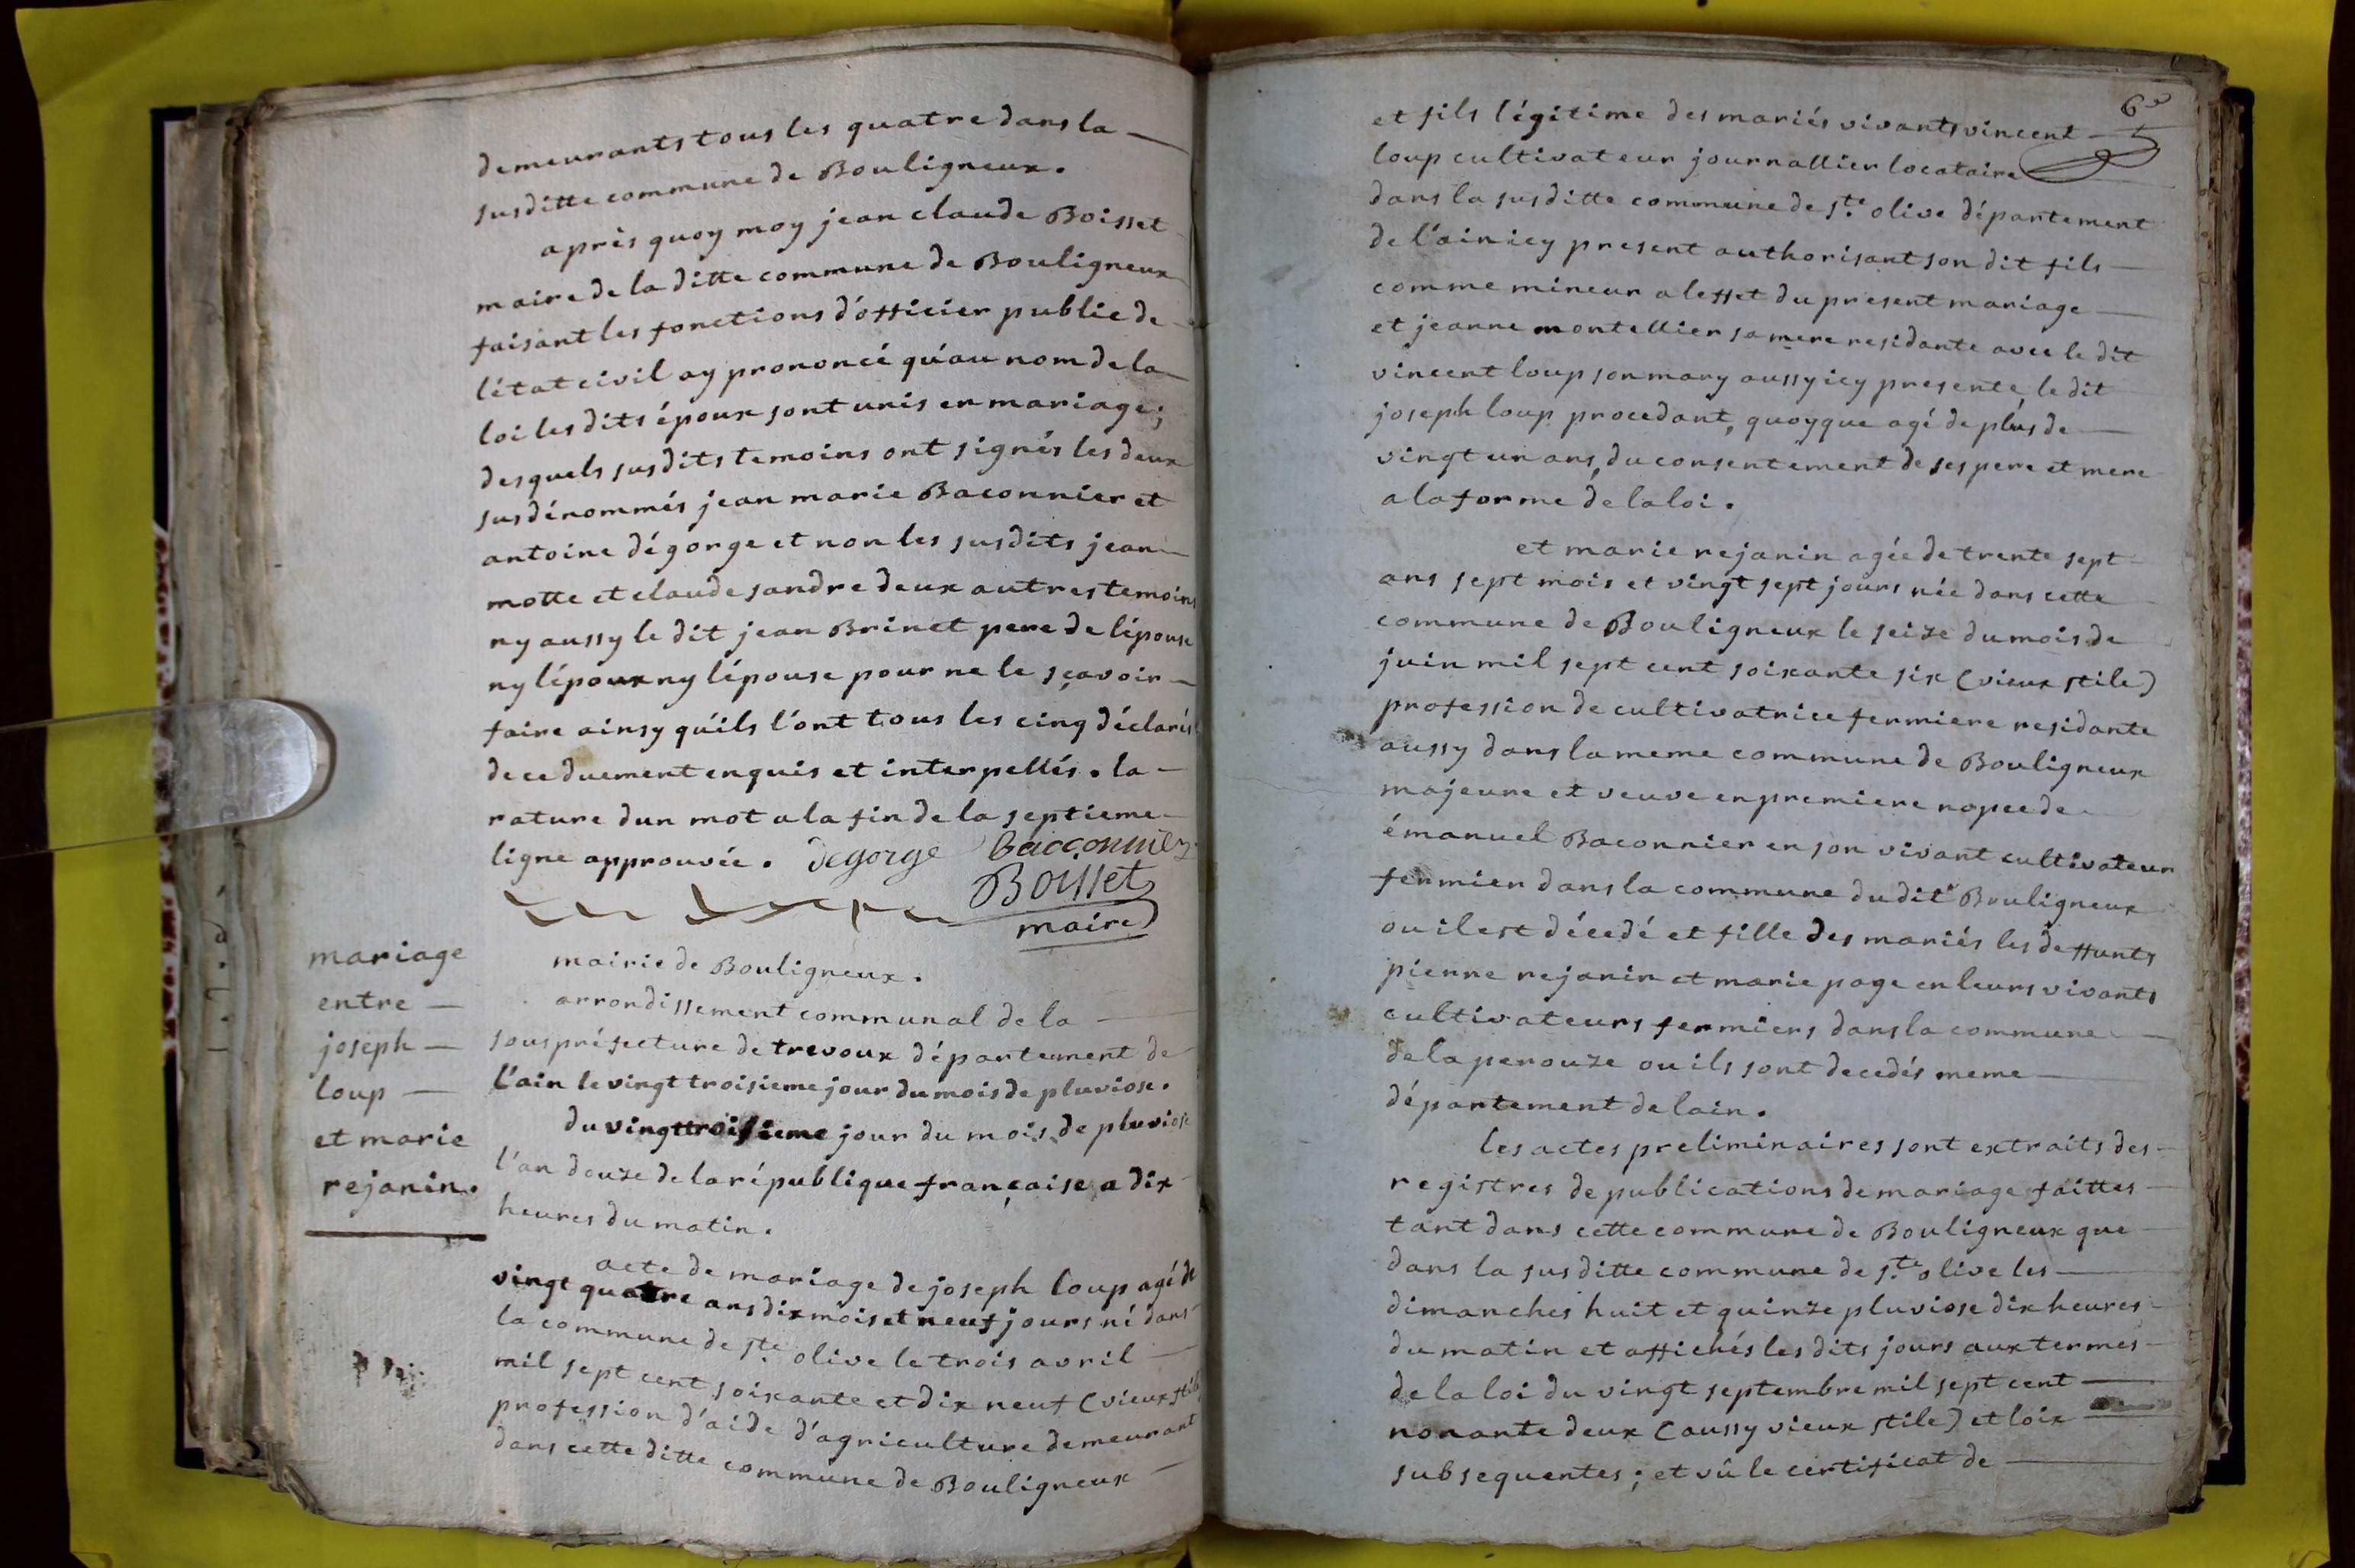 demeurants tous les quatre dans la
susditte commune de Bouligneux.
après quoy moy jean claude Boisset
maire de la ditte commune de Bouligneux
faisant les fonctions d'officier public de
l'état civil ay prononcé qu'au nom de la
loi les dits époux sont unis en mariage;
desquels susdits temoins ont signés les deux
susdénommés jean marie Baconnier et
antoine dégorge et non les susdits jean
motte et claude sandre deux autres temoins
ny aussy le dit jean Brinet pere de l'épouse
ny l'époux ny l'épouse pour ne le sçavoir
faire ainsy qu'ils l'ont tous les cinq déclarés
de ce duement enquis et interpellés. la
rature dun mot a la fin de la septieme
ligne approuvée. degorge bacconnier
Boisset
maire
mariage
entre
joseph
loup
et marie
rejanin.
mairie de Bouligneux.
arrondissement communal de la
souspréfecture de trevoux département de
l'ain le vingt troisieme jour du mois de pluviose.
du vingt troisieme jour du mois de pluviose
l'an douze de la république française a dix
heures du matin.
acte de mariage de joseph loup agé de
vingt quatre ans dix mois et neuf jours né dans
la commune de ste olive le trois avril
mil sept cent soixante et dix neuf (vieux stile)
profession d'aide d'agriculture demeurant
dans cette ditte commune de Bouligneux
6
et fils légitime des mariés vivants vincent
loup cultivateur journallier locataire
dans la susditte commune de ste olive département
de l'ain icy present authorisant son dit fils
comme mineur a leffet du present mariage
et jeanne montellier sa mere residante avec le dit
vincent loup son mary aussy icy presente, le dit
joseph loup procedant, quoyque agé de plus de
vingt un ans, du consentement de ses pere et mere
a la forme de la loi.
et marie rejanin agée de trente sept
ans sept mois et vingt sept jours née dans cette
commune de Bouligneux le seize du mois de
juin mil sept cent soixante six (vieux stile)
profession de cultivatrice fermiere residante
aussy dans la meme commune de Bouligneux
majeure et veuve en premiere nopce de
émanuel Baconnier en son vivant cultivateur
fermier dans la commune du dit Bouligneux
ou il est décedé et fille des mariés les deffunts
pierre rejanin et marie page en leurs vivants
cultivateurs fermiers dans la commune
de la perouze ou ils sont decedés meme
département de lain.
les actes preliminaires sont extraits des
registres de publications de mariage faittes
tant dans cette commune de Bouligneux que
dans la susditte commune de ste olive les
dimanches huit et quinze pluviose dix heures
du matin et affichés les dits jours aux termes
de la loi du vingt septembre mil sept cent
nonante deux (aussy vieux stile) et loix
subsequentes; et vû le certificat de